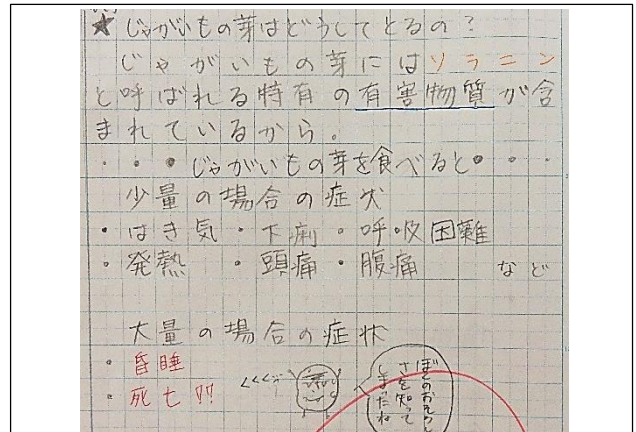 ★じゃがいもの芽はどうしてとるの？
じゃがいもの芽にはソラニン
と呼ばれる特有の有害物質が含
まれているから。
・・・じゃがいもの芽を食べると・・・
少量の場合の症状
・はき気・下痢・呼吸困難
・発熱・頭痛・腹痛 など
大量の場合の症状
・昏睡
・死亡!!
くくく
ぼくのおそろし
さを知って
しまったね